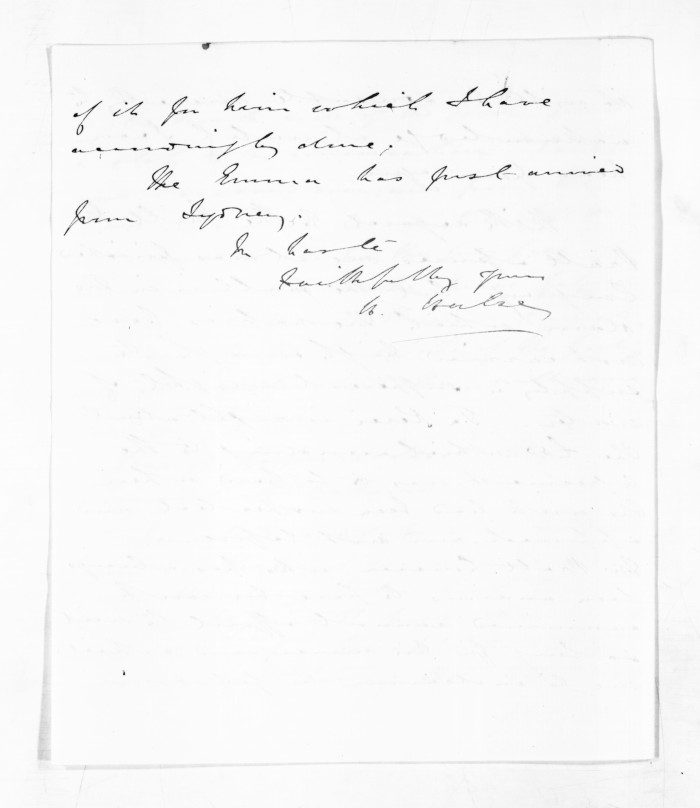 of it for him which I have
accordingly done.
The Emma has just arrived
from Sydney.
In haste
Faithfully yours